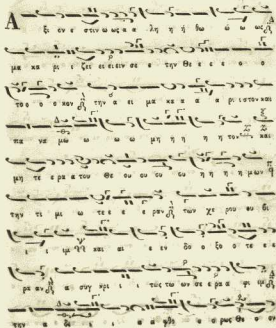 Α
ξι ο ν ε στιν ω ως α α λη η ή θω ώ ω ως
μα κα ρι ζει ει ει ειν σε ε την Θε ε ε ε ο ο
το ο ο κον την α ει μα κα α α ρι ι στον και
πα να μω ώ ω ω μη η η η τον και
μη τε ρα α του Θε ε ου ου ου ου η η η μων
την τι μι ω τε ε ε ε ραν των χε ρου ου βι
ι ι ιμ και αι ε εν δο ο ξο ο τε ε
ραν α α συγ κρι ι τως τω ων σε ε ρα α φι ιμ
την α δι ι ι α α φθο ο ο ρως Θε ο ον